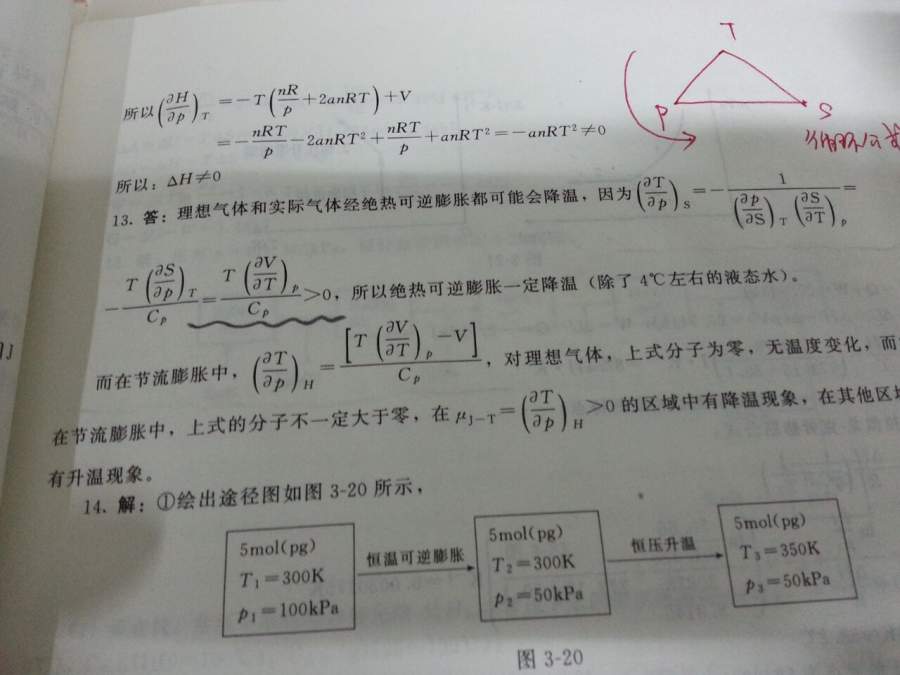 T
P
S
所以(∂H/∂p)_T = -T(nR/p + 2anRT) + V
= -nRT/p - 2anRT² + nRT/p + anRT² = -anRT² ≠ 0
所以：ΔH≠0
13. 答：理想气体和实际气体经绝热可逆膨胀都可能会降温，因为(∂T/∂p)_S = - 1/((∂p/∂S)_T (∂S/∂T)_p) =
- T(∂S/∂p)_T/C_p = T(∂V/∂T)_p/C_p > 0，所以绝热可逆膨胀一定降温（除了 4℃左右的液态水）。
而在节流膨胀中，(∂T/∂p)_H = [T(∂V/∂T)_p - V]/C_p，对理想气体，上式分子为零，无温度变化，而
在节流膨胀中，上式的分子不一定大于零，在 μ_J-T = (∂T/∂p)_H > 0 的区域中有降温现象，在其他区域
有升温现象。
14. 解：①绘出途径图如图 3-20 所示，
5mol(pg)
T₁=300K
p₁=100kPa
恒温可逆膨胀
5mol(pg)
T₂=300K
p₂=50kPa
恒压升温
5mol(pg)
T₃=350K
p₃=50kPa
图 3-20